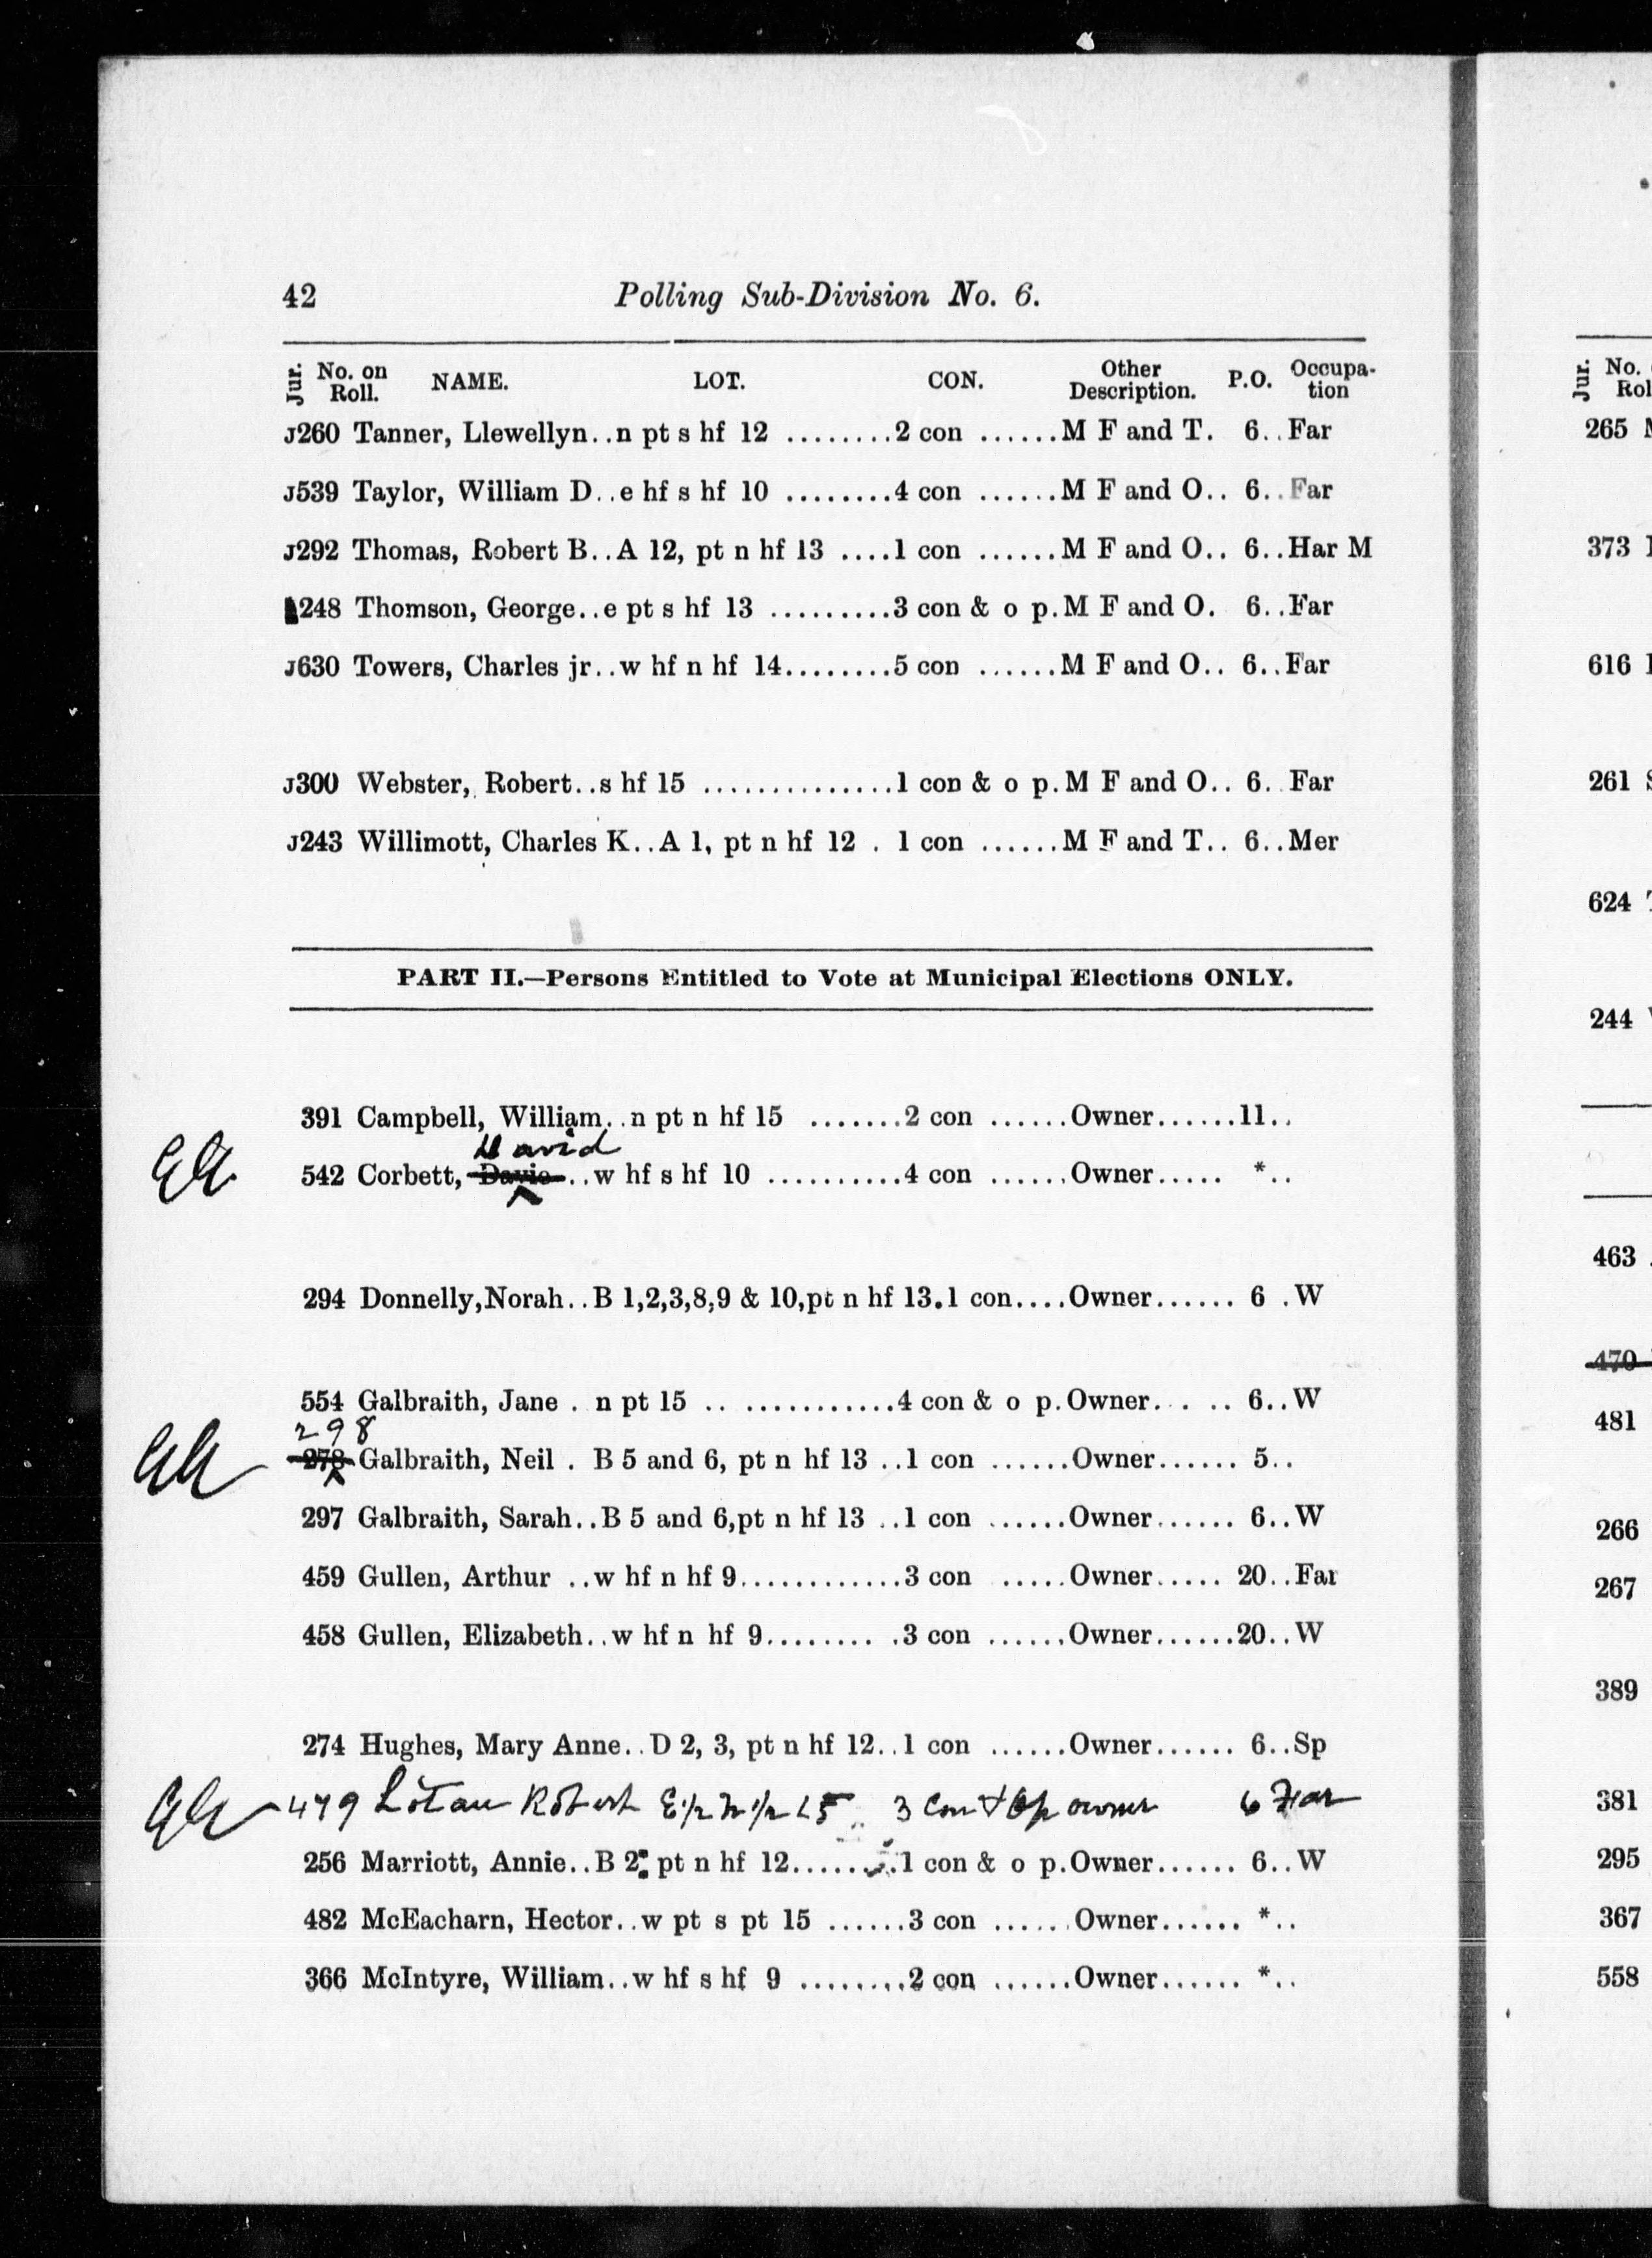 42 Polling Sub-Division No. 6.
Jur. No. on Roll. NAME. LOT. CON. Other Description. P.O. Occupa-tion
J260 Tanner, Llewellyn..n pt s hf 12 ........2 con ......M F and T. 6..Far
J539 Taylor, William D..e hf s hf 10 ........4 con ......M F and O.. 6..Far
J292 Thomas, Robert B..A 12, pt n hf 13 ....1 con ......M F and O.. 6..Har M
248 Thomson, George..e pt s hf 13 .........3 con & o p.M F and O. 6..Far
J630 Towers, Charles jr..w hf n hf 14........5 con ......M F and O.. 6..Far
J300 Webster, Robert..s hf 15 ..............1 con & o p.M F and O.. 6. Far
J243 Willimott, Charles K..A 1, pt n hf 12 . 1 con ......M F and T.. 6..Mer
PART II.—Persons Entitled to Vote at Municipal Elections ONLY.
391 Campbell, William..n pt n hf 15 .......2 con ......Owner......11..
David
542 Corbett, Davie..w hf s hf 10 ..........4 con ......Owner..... *..
294 Donnelly,Norah..B 1,2,3,8,9 & 10,pt n hf 13.1 con....Owner...... 6 .W
554 Galbraith, Jane . n pt 15 .. ............4 con & o p.Owner. . .. 6..W
298
278 Galbraith, Neil . B 5 and 6, pt n hf 13 ..1 con ......Owner...... 5..
297 Galbraith, Sarah..B 5 and 6,pt n hf 13 ..1 con ......Owner...... 6..W
459 Gullen, Arthur ..w hf n hf 9............3 con .....Owner..... 20..Far
458 Gullen, Elizabeth..w hf n hf 9........ .3 con ......Owner......20..W
274 Hughes, Mary Anne..D 2, 3, pt n hf 12..1 con ......Owner...... 6..Sp
479 Robert E 1/2 N 1/2 15 3 Con & Op owner 6 Far
256 Marriott, Annie..B 2, pt n hf 12........1 con & o p.Owner...... 6..W
482 McEacharn, Hector..w pt s pt 15 ......3 con ......Owner...... *..
366 McIntyre, William..w hf s hf 9 ........2 con ......Owner...... *..
Jur. No.
265
373
616
261
624
244
463
470
481
266
267
389
381
295
367
558